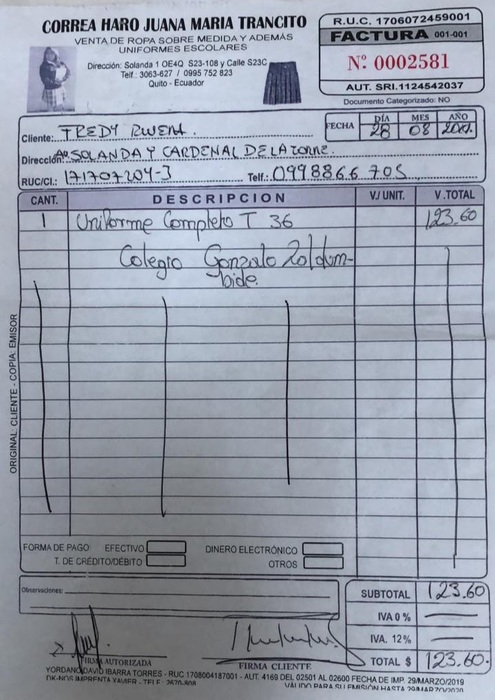 CORREA HARO JUANA MARIA TRANCITO
VENTA DE ROPA SOBRE MEDIDA Y ADEMÁS
UNIFORMES ESCOLARES
Dirección: Solanda 1 OE4Q S23-108 y Calle S23C
Telf: 3063-627 / 0995 752 823
Quito - Ecuador
R.U.C. 1706072459001
FACTURA 001-001
Nº 0002581
AUT. SRI.1124542037
Documento Categorizado: NO
FECHA DÍA MES AÑO
28 08
Cliente: FREDY
Dirección: SOLANDA Y CARDENAL DE LA TORRE.
RUC/CI.: 171707204-3 Telf.: 0998866705
CANT. DESCRIPCION V./ UNIT. V .TOTAL
1 Uniforme Completo T 36 123.60
Colegio Gonzalo Zaldum-
bide.
ORIGINAL: CLIENTE - COPIA: EMISOR
FORMA DE PAGO EFECTIVO DINERO ELECTRÓNICO
T. DE CRÉDITO/DÉBITO OTROS
Observaciones:
SUBTOTAL 123.60
IVA 0 %
IVA. 12%
TOTAL $ 123.60.
FIRMA AUTORIZADA FIRMA CLIENTE
YORDANO DAVID IBARRA TORRES - RUC 1708004187001 - AUT. 4169 DEL 02501 AL 02600 FECHA DE IMP. 29/MARZO/2019
IMPRENTA XAVIER - TELF. VÁLIDO PARA SU EMISIÓN HASTA 29/MARZO/2020